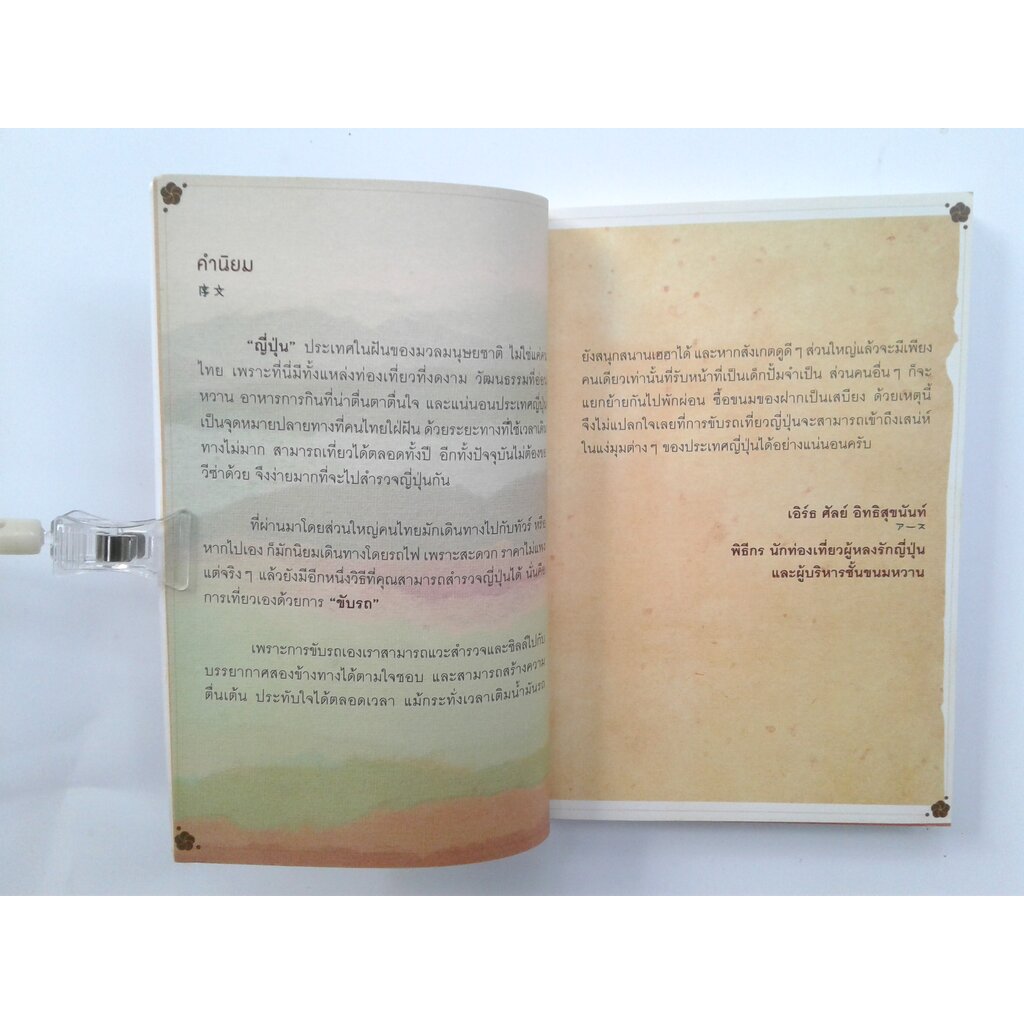 คำนิยม
序文
“ญี่ปุ่น” ประเทศในฝันของมวลมนุษยชาติ ไม่ใช่แค่คน
ไทย เพราะที่นี่มีทั้งแหล่งท่องเที่ยวที่งดงาม วัฒนธรรมที่อ่อน
หวาน อาหารการกินที่น่าตื่นตาตื่นใจ และแน่นอนประเทศญี่ปุ่น
เป็นจุดหมายปลายทางที่คนไทยใฝ่ฝัน ด้วยระยะทางที่ใช้เวลาเดิน
ทางไม่มาก สามารถเที่ยวได้ตลอดทั้งปี อีกทั้งปัจจุบันไม่ต้องขอ
วีซ่าด้วย จึงง่ายมากที่จะไปสำรวจญี่ปุ่นกัน
ที่ผ่านมาโดยส่วนใหญ่คนไทยมักเดินทางไปกับทัวร์ หรือ
หากไปเอง ก็มักนิยมเดินทางโดยรถไฟ เพราะสะดวก ราคาไม่แพง
แต่จริงๆ แล้วยังมีอีกหนึ่งวิธีที่คุณสามารถสำรวจญี่ปุ่นได้ นั่นคือ
การเที่ยวเองด้วยการ “ขับรถ”
เพราะการขับรถเองเราสามารถแวะสำรวจและชิลล์ไปกับ
บรรยากาศสองข้างทางได้ตามใจชอบ และสามารถสร้างความ
ตื่นเต้น ประทับใจได้ตลอดเวลา แม้กระทั่งเวลาเติมน้ำมันรถ
ยังสนุกสนานเฮฮาได้ และหากสังเกตดูดีๆ ส่วนใหญ่แล้วจะมีเพียง
คนเดียวเท่านั้นที่รับหน้าที่เป็นเด็กปั้มจำเป็น ส่วนคนอื่นๆ ก็จะ
แยกย้ายกันไปพักผ่อน ซื้อขนมของฝากเป็นเสบียง ด้วยเหตุนี้
จึงไม่แปลกใจเลยที่การขับรถเที่ยวญี่ปุ่นจะสามารถเข้าถึงเสน่ห์
ในแง่มุมต่างๆ ของประเทศญี่ปุ่นได้อย่างแน่นอนครับ
เอิร์ธ ศัลย์ อิทธิสุขนันท์
アース
พิธีกร นักท่องเที่ยวผู้หลงรักญี่ปุ่น
และผู้บริหารชั้นขนมหวาน